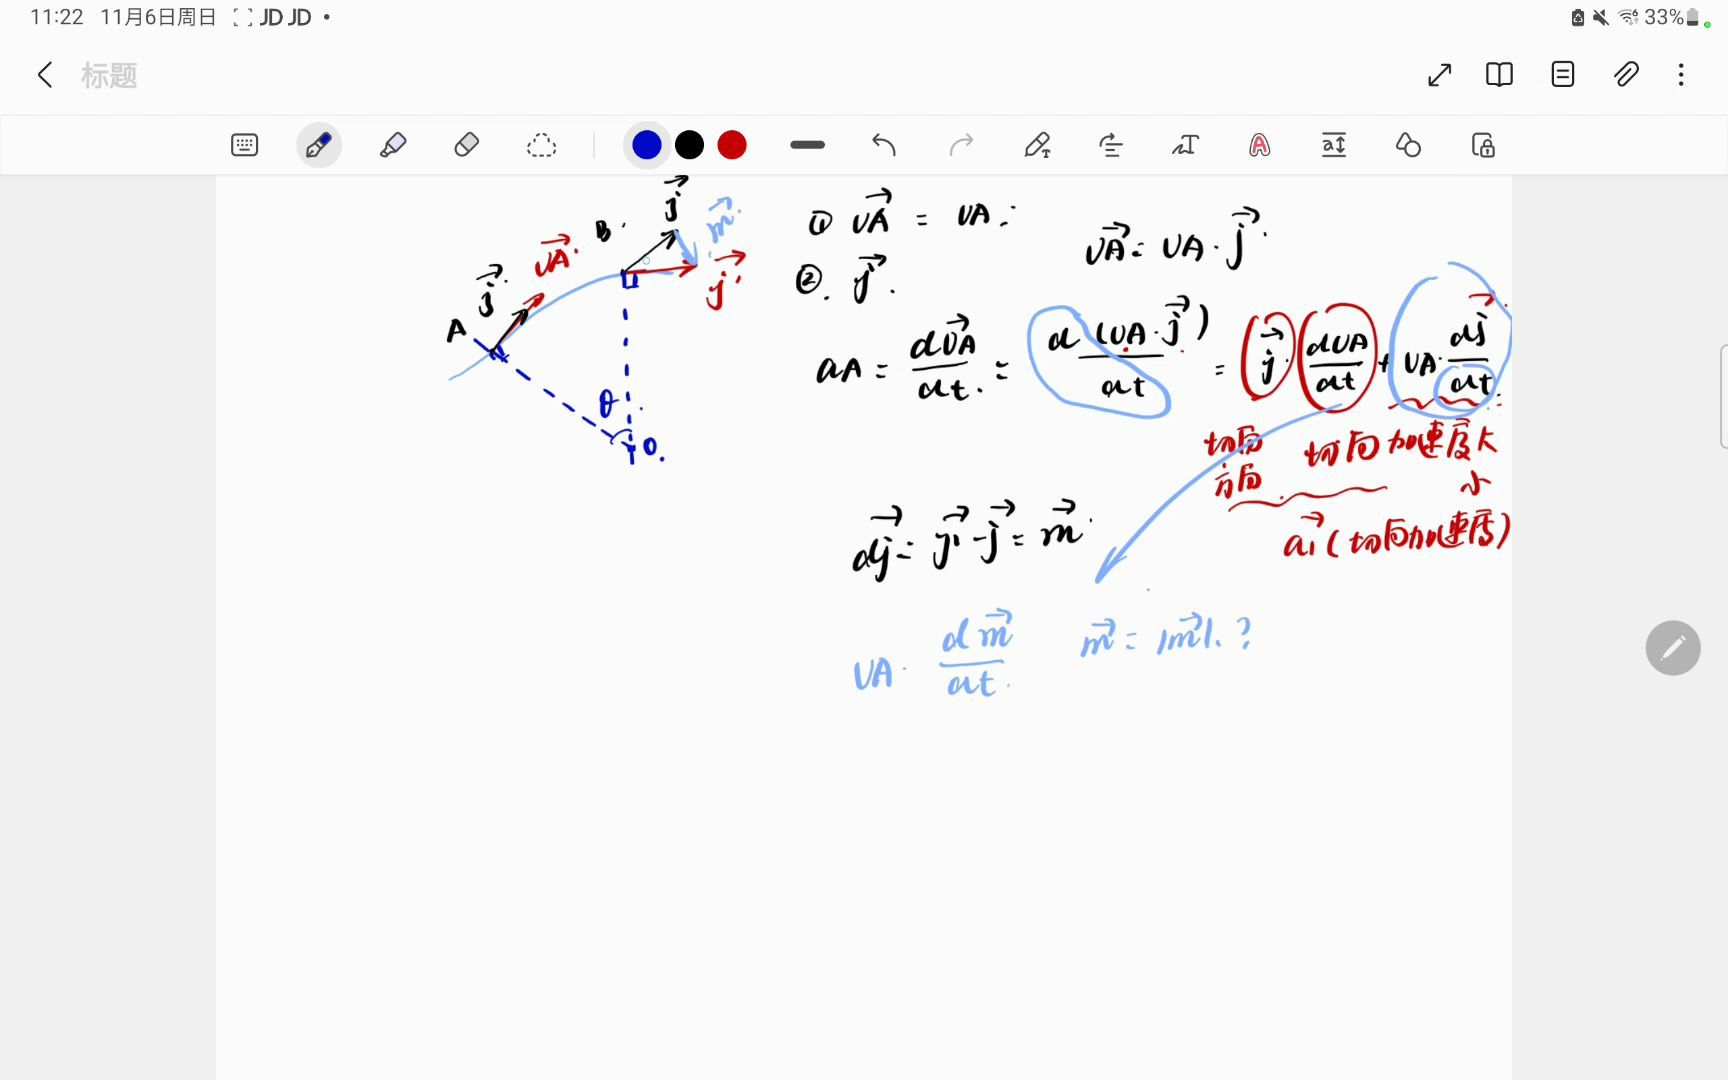 11:22 11月6日周日 JD JD •
33%
标题
j⃗
m⃗
B
v⃗A
j⃗'
j⃗
A
θ
O.
① v⃗A = vA
② j⃗
v⃗A = vA · j⃗
aA = dv⃗A/dt = d(vA · j⃗)/dt = j⃗ dvA/dt + vA · dj⃗/dt
切向方向
切向加速度大小
a⃗₁(切向加速度)
dj⃗ = j⃗' - j⃗ = m⃗
vA · dm⃗/dt
m⃗ = |m⃗|. ?